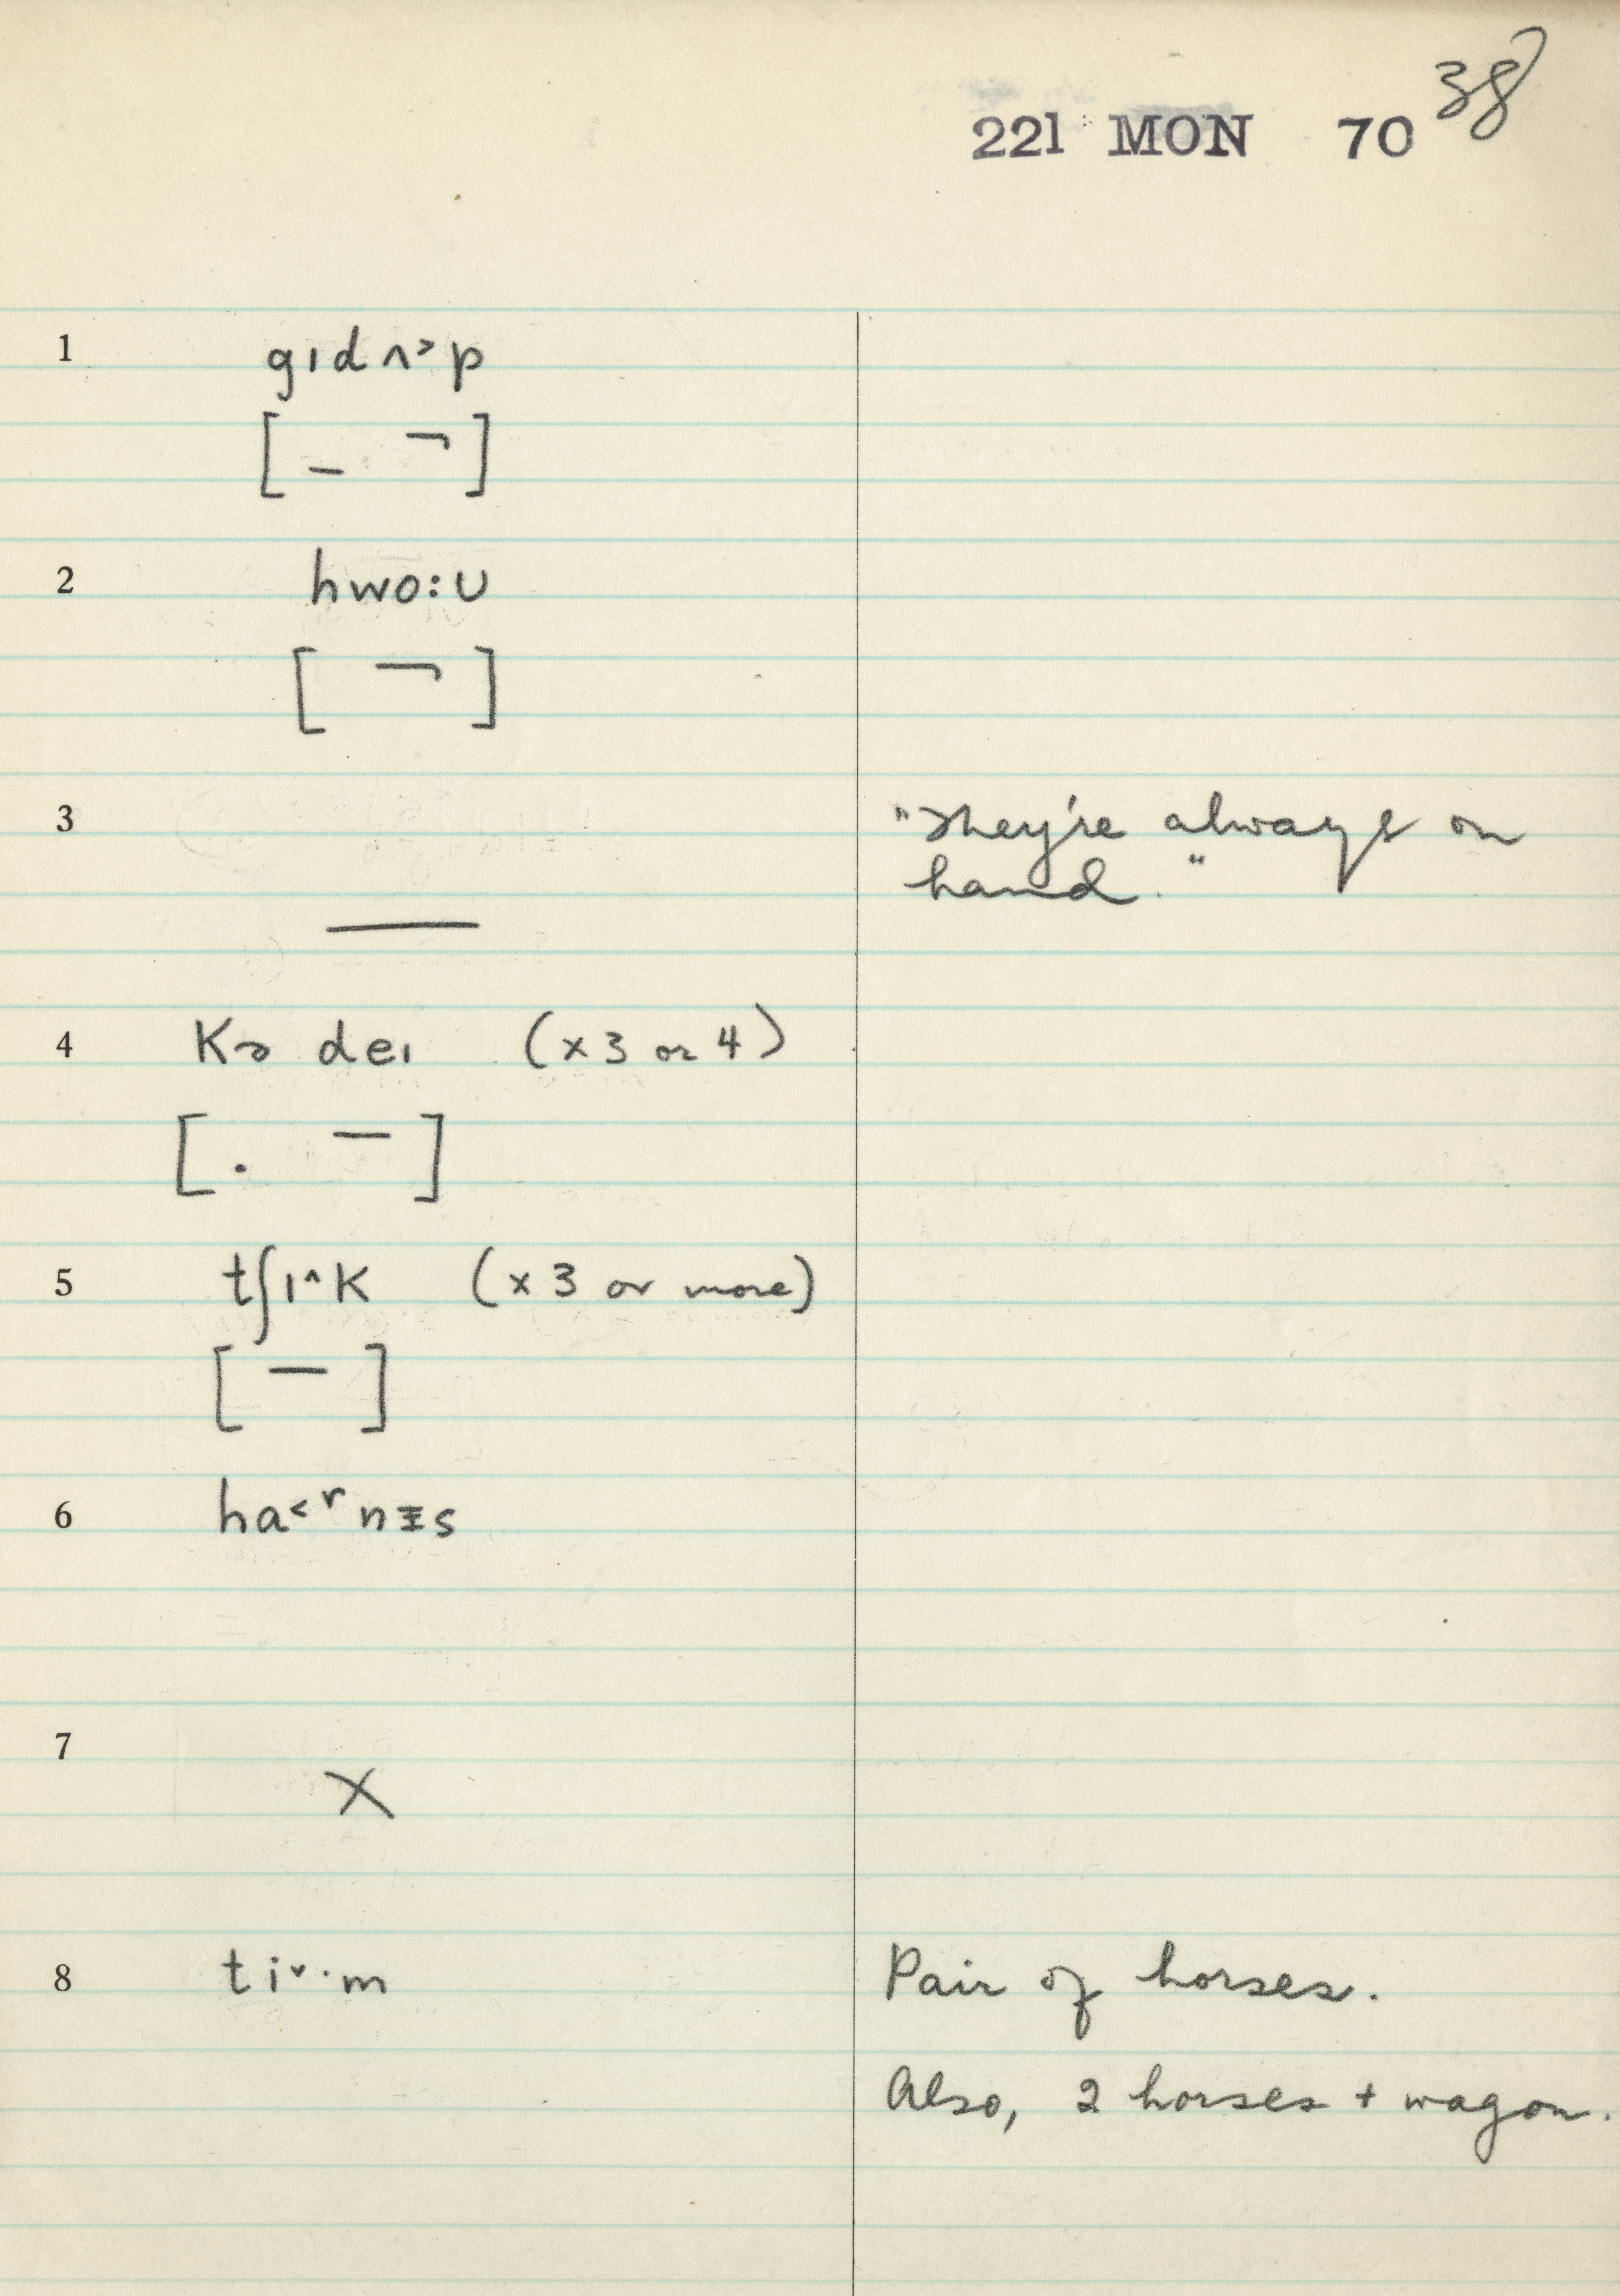 38
221 MON 70
1 gɪdʌ˃p
[ _ ¬ ]
2 hwo:ᴜ
[ ¬ ]
3 "They're always on
hand."
—
4 Kə deɪ (x 3 or 4)
[ . — ]
5 tʃɪ^K (x 3 or more)
[ — ]
6 ha˂ʳnɪ̵s
7 X
8 ti˅·m Pair of horses.
Also, 2 horses + wagon.